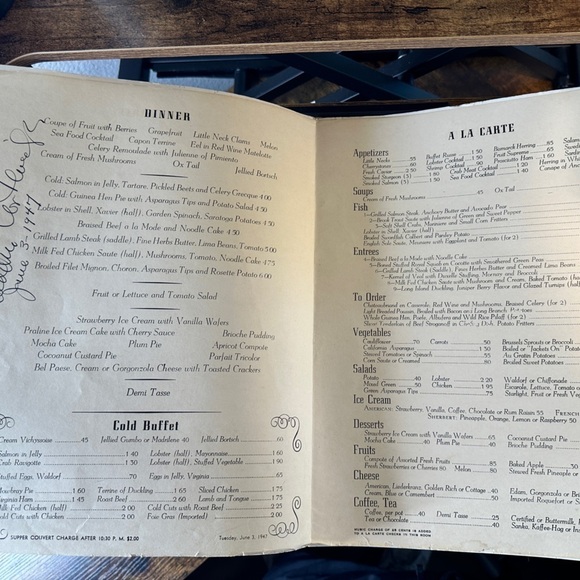 DINNER
Coupe of Fruit with Berries Grapefruit Little Neck Clams Melon
Sea Food Cocktail Capon Terrine Eel in Red Wine Matelotte
Celery Remoulade with Julienne of Pimiento
Cream of Fresh Mushrooms Ox Tail Jellied Bortsch
Cold: Salmon in Jelly, Tartare, Pickled Beets and Celery Grecque 4.00
Cold: Guinea Hen Pie with Asparagus Tips and Potato 4.50
Lobster in Shell, Xavier (half), Garden Spinach, Saratoga Potatoes 4.50
Braised Beef a la Mode and Noodle Cake 4.50
Grilled Lamb Steak (saddle), Fine Herbs Butter, Lima Beans, Tomato 5.00
Milk Fed Chicken Saute (half), Mushrooms, Tomato, Noodle Cake 4.75
Broiled Filet Mignon, Choron, Asparagus Tips and Rosette Potato 6.00
Fruit or Lettuce and Tomato Salad
Strawberry Ice Cream with Vanilla Wafers
Praline Ice Cream Cake with Cherry Sauce Brioche Pudding
Mocha Cake Plum Pie Apricot Compote
Cocoanut Custard Pie Parfait Tricolor
Bel Paese, Cream or Gorgonzola Cheese with Toasted Crackers
Demi Tasse
June 3-1947
Cold Buffet
Cream Vichysoise .45 Jellied Gumbo or Madelene .40 Jellied Bortsch .60
Salmon in Jelly 1.40 Lobster (half), Mayonnaise 1.60
Crab Ravigotte 1.50 Lobster (half), Stuffed Vegetable 1.90
Stuffed Eggs, Waldorf .70 Eggs in Jelly, Virginia .65
Pie 1.60 Terrine of Duckling 1.65 Sliced Chicken 1.75
Virginia Ham 1.45 Roast Beef 2.60 Lamb and Tongue 1.75
Milk Fed Chicken (half) 2.00 Cold Cuts with Roast Beef 2.25
Cold Cuts with Chicken 2.00 Foie Gras (Imported) 2.00
SUPPER COUVERT CHARGE AFTER 10:30 P. M. $2.00 Tuesday, June 3, 1947
A LA CARTE
Appetizers
Little Necks .55 Buffet Russe 1.50 Bismarck Herring .85
Cherrystones .60 Lobster Cocktail 1.50 Fruit Supreme .65
Fresh Caviar 2.50 Shrimp Cocktail .90 Prosciutto Ham 1.60
Smoked Sturgeon (3) 1.80 Crab Meat Cocktail 1.40 Herring in
Smoked Salmon (3) 1.50 Sea Food Cocktail 1.40 Canape of
Soups
Cream of Fresh Mushrooms .45 Ox Tail
Fish
Grilled Salmon Steak, Anchovy Butter and Avocado Pear
Brook Trout Saute with Julienne of Green and Sweet Pepper
Soft Shell Crabs, Meuniere and Small Corn Fritters
Lobster in Shell, Xavier (half)
Broiled Swordfish Cutlet and Parsley Potato
English Sole Saute, Meuniere with Eggplant and Tomato (for 2)
Entrees
Braised Beef a la Mode with Noodle Cake
Boned Stuffed Royal Squab en Cocotte with Smothered Green Peas
Grilled Lamb Steak (Saddle), Fine Herbes Butter and Creamed Lima Beans
Kernel of Veal with Duxelle Stuffing, Morners and Broccoli
Milk Fed Chicken Saute with Mushrooms and Cream, Baked Tomato (half)
Long Island Duckling, Juniper Berry Flavor and Glazed Turnips (half)
To Order
Chateaubriand en Casserole, Red Wine and Mushrooms, Braised Celery (for 2)
Light Breaded Poussin, Broiled with Bacon and Long Branch Potatoes
Whole Guinea Hen, Paule, Albufera and Wild Rice Pilaff (for 2)
Slow Tenderloin of Beef Stroganoff in Chafing Dish, Potato Fritters
Vegetables
Cauliflower .70 Carrots .50 Brussels Sprouts or Broccoli
California Asparagus 1.50 Boiled or "Jackets On" Potatoes
Stewed Tomatoes or Spinach .55 Au Gratin Potatoes
Corn Saute or Creamed .80 Broiled Sweet Potatoes
Salads
Potato .40 Lobster 2.20 Waldorf or Chiffonade
Mixed Green .50 Chicken 1.95 Escarole, Lettuce, Tomato
Green Asparagus Tips .75 Starlight, Fruit or Fresh Veg
Ice Cream
AMERICAN: Strawberry, Vanilla, Coffee, Chocolate or Rum Raisin 55 FRENCH
SHERBET: Pineapple, Orange, Lemon or Raspberry 50
Desserts
Strawberry Ice Cream with Vanilla Wafers .65 Cocoanut Custard Pie
Mocha Cake .40 Plum Pie .40 Brioche Pudding
Fruits
Compote of Assorted Fresh Fruits .85 Baked Apple .50
Fresh Strawberries or Cherries 80 Melon .80 Stewed Fresh Pineapple or
Cheese
American, Liederkranz, Golden Rich or Cottage .40 Edam, Gorgonzola or Brie
Cream, Bleu or Camembert .40 Imported Roquefort or
Coffee, Tea
Coffee, per pot .40 Demi Tasse .25 Certified or Buttermilk,
Tea or Chocolate .40 Sanka, Kaffee-Hag or
MUSIC CHARGE OF 50 CENTS IS ADDED
TO A LA CARTE CHECKS IN THIS ROOM